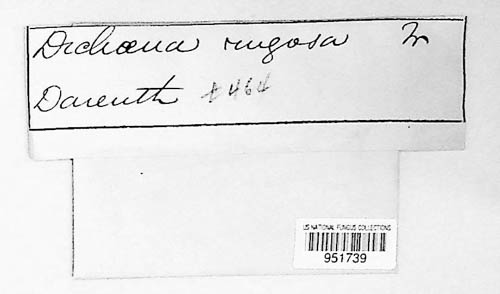 Dichaena rugosa Fr
Darenth #464
US NATIONAL FUNGUS COLLECTIONS
951739